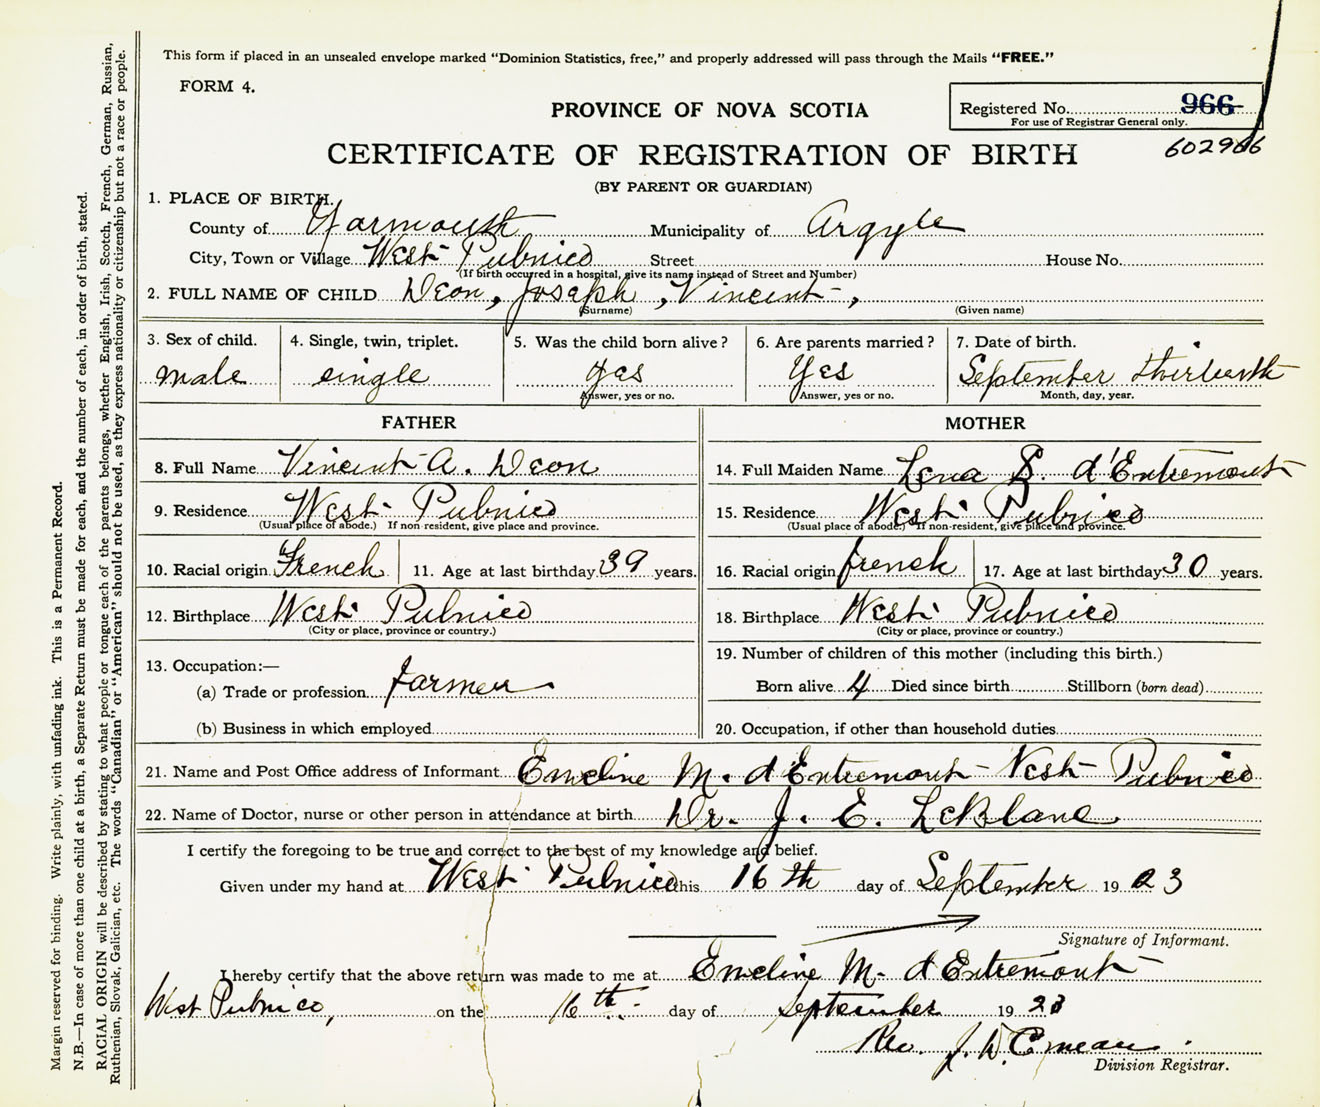 This form if placed in an unsealed envelope marked "Dominion Statistics, free," and properly addressed will pass through the Mails "FREE."
FORM 4.
PROVINCE OF NOVA SCOTIA
Registered No. 966
For use of Registrar General only.
CERTIFICATE OF REGISTRATION OF BIRTH
602966
(BY PARENT OR GUARDIAN)
1. PLACE OF BIRTH.
County of Yarmouth Municipality of Argyle
City, Town or Village West Pubnico Street House No.
(If birth occurred in a hospital, give its name instead of Street and Number)
2. FULL NAME OF CHILD Deon, Joseph, Vincent,
(Surname) (Given name)
3. Sex of child. 4. Single, twin, triplet. 5. Was the child born alive? 6. Are parents married? 7. Date of birth.
male single yes Yes September thirteenth
Answer, yes or no. Answer, yes or no. Month, day, year.
FATHER MOTHER
8. Full Name Vincent A. Deon 14. Full Maiden Name Lena S. d'Entremont
9. Residence West Pubnico 15. Residence West Pubnico
(Usual place of abode.) If non-resident, give place and province. (Usual place of abode.) If non-resident, give place and province.
10. Racial origin French 11. Age at last birthday 39 years. 16. Racial origin french 17. Age at last birthday 30 years.
12. Birthplace West Pubnico 18. Birthplace West Pubnico
(City or place, province or country.) (City or place, province or country.)
13. Occupation:— 19. Number of children of this mother (including this birth.)
(a) Trade or profession farmer Born alive 4 Died since birth Stillborn (born dead)
(b) Business in which employed 20. Occupation, if other than household duties
21. Name and Post Office address of Informant Emeline M. d'Entremont - West Pubnico
22. Name of Doctor, nurse or other person in attendance at birth Dr. J. E. LeBlanc
I certify the foregoing to be true and correct to the best of my knowledge and belief.
Given under my hand at West Pubnico this 16th day of September 1923
Signature of Informant.
I hereby certify that the above return was made to me at Emeline M. d'Entremont
West Pubnico, on the 16th day of September 1923
Rev. J. D. Comeau
Division Registrar.
Margin reserved for binding. Write plainly, with unfading ink. This is a Permanent Record.
N.B.—In case of more than one child at a birth, a Separate Return must be made for each, and the number of each, in order of birth, stated.
RACIAL ORIGIN will be described by stating to what people or tongue each of the parents belongs, whether English, Irish, Scotch, French, German, Russian,
Ruthenian, Slovak, Galician, etc. The words "Canadian" or "American" should not be used, as they express nationality or citizenship but not a race or people.